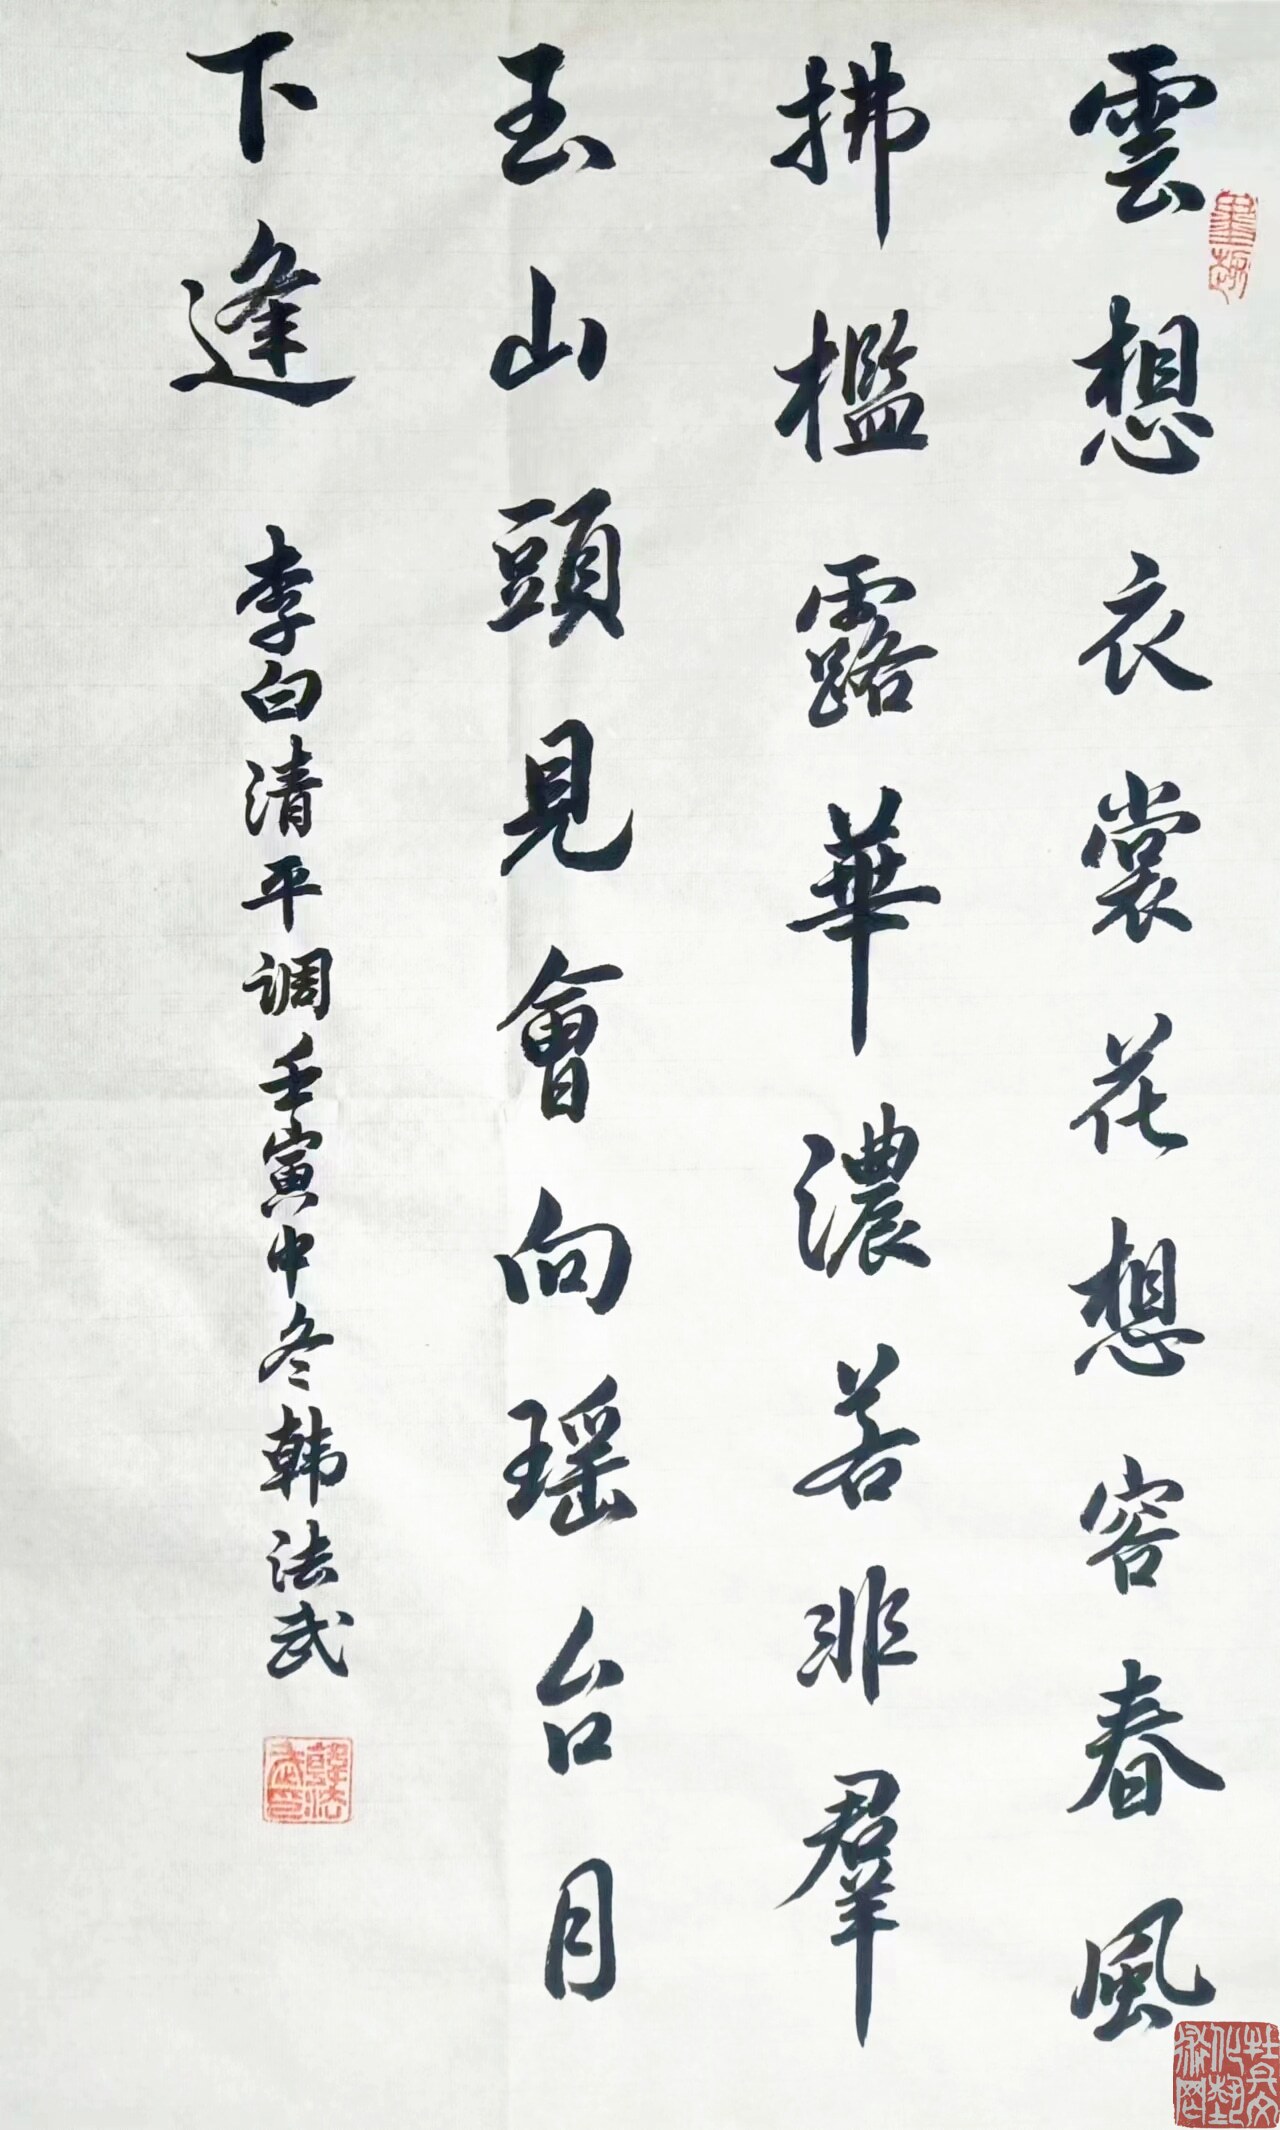 雲想衣裳花想容春風
拂檻露華濃若非羣
玉山頭見會向瑶台月
下逢
李白清平调壬寅中冬韩法武
韓法武印